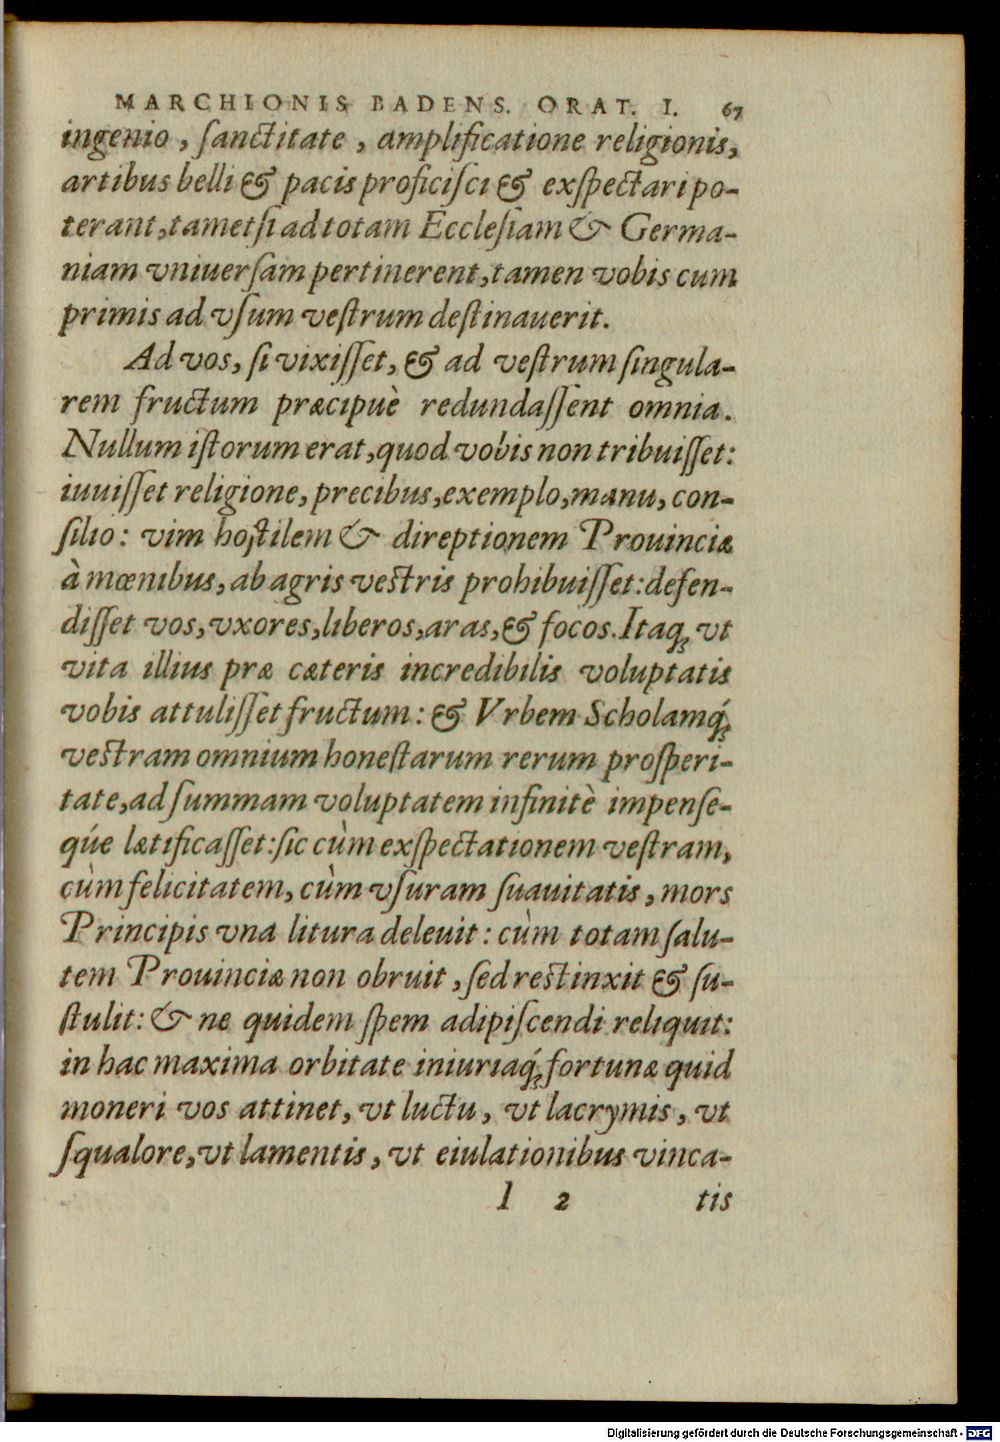 MARCHIONIS BADENS. ORAT. I. 67
ingenio, ſanctitate, amplificatione religionis,
artibus belli & pacis proficiſci & exſpectari po-
terant, tametſi ad totam Eccleſiam & Germa-
niam vniuerſam pertinerent, tamen vobis cum
primis ad vſum veſtrum deſtinauerit.
Ad vos, ſi vixiſſet, & ad veſtrum ſingula-
rem fructum præcipuè redundaſſent omnia.
Nullum iſtorum erat, quod vobis non tribuiſſet:
iuuiſſet religione, precibus, exemplo, manu, con-
ſilio: vim hoſtilem & direptionem Prouinciæ
à mœnibus, ab agris veſtris prohibuiſſet: defen-
diſſet vos, vxores, liberos, aras, & focos. Itaq; vt
vita illius præ cæteris incredibilis voluptatis
vobis attuliſſet fructum: & Vrbem Scholamq́;
veſtram omnium honeſtarum rerum proſperi-
tate, ad ſummam voluptatem infinitè impenſe-
q́ue lætificaſſet: ſic cùm exſpectationem veſtram,
cùm felicitatem, cùm vſuram ſuauitatis, mors
Principis vna litura deleuit: cùm totam ſalu-
tem Prouinciæ non obruit, ſed reſtinxit & ſu-
ſtulit: & ne quidem ſpem adipiſcendi reliquit:
in hac maxima orbitate iniuriaq́; fortunæ quid
moneri vos attinet, vt luctu, vt lacrymis, vt
ſqualore, vt lamentis, vt eiulationibus vinca-
l 2 tis
Digitalisierung gefördert durch die Deutsche Forschungsgemeinschaft - DFG